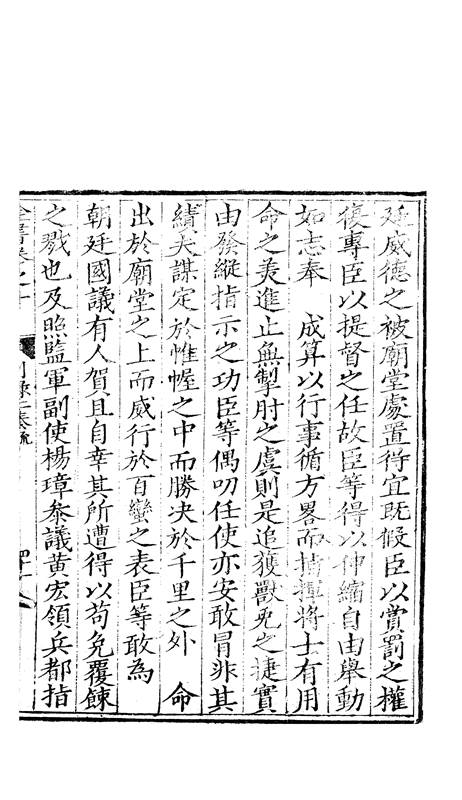 廷威德之被廟堂處置得宜既假臣以賞罰之權
復專臣以提督之任故臣等得以伸縮自由舉動
如志奉　成算以行事循方畧而指揮將士有用
命之美進止無掣肘之虞則是追獲獸兔之捷實
由發縱指示之功臣等偶叨任使亦安敢冒非其
績夫謀定於帷幄之中而勝决於千里之外　命
出於廟堂之上而威行於百蠻之表臣等敢為
朝廷國議有人賀且自幸其所遭得以苟免覆餗
之戮也及照監軍副使楊璋叅議黃宏領兵都指
全書卷之十